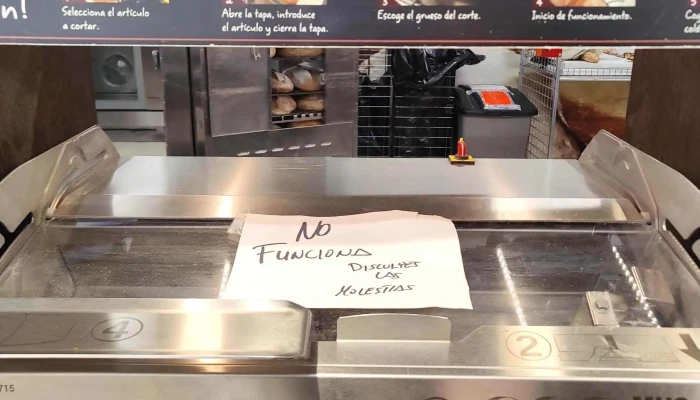 n!
1 Selecciona el artículo
a cortar.
2 Abre la tapa, introduce
el artículo y cierra la tapa.
3 Escoge el grueso del corte.
4 Inicio de funcionamiento.
No
FUNCIONA
DISCULPES
LAS
MOLESTIAS
4
2
715